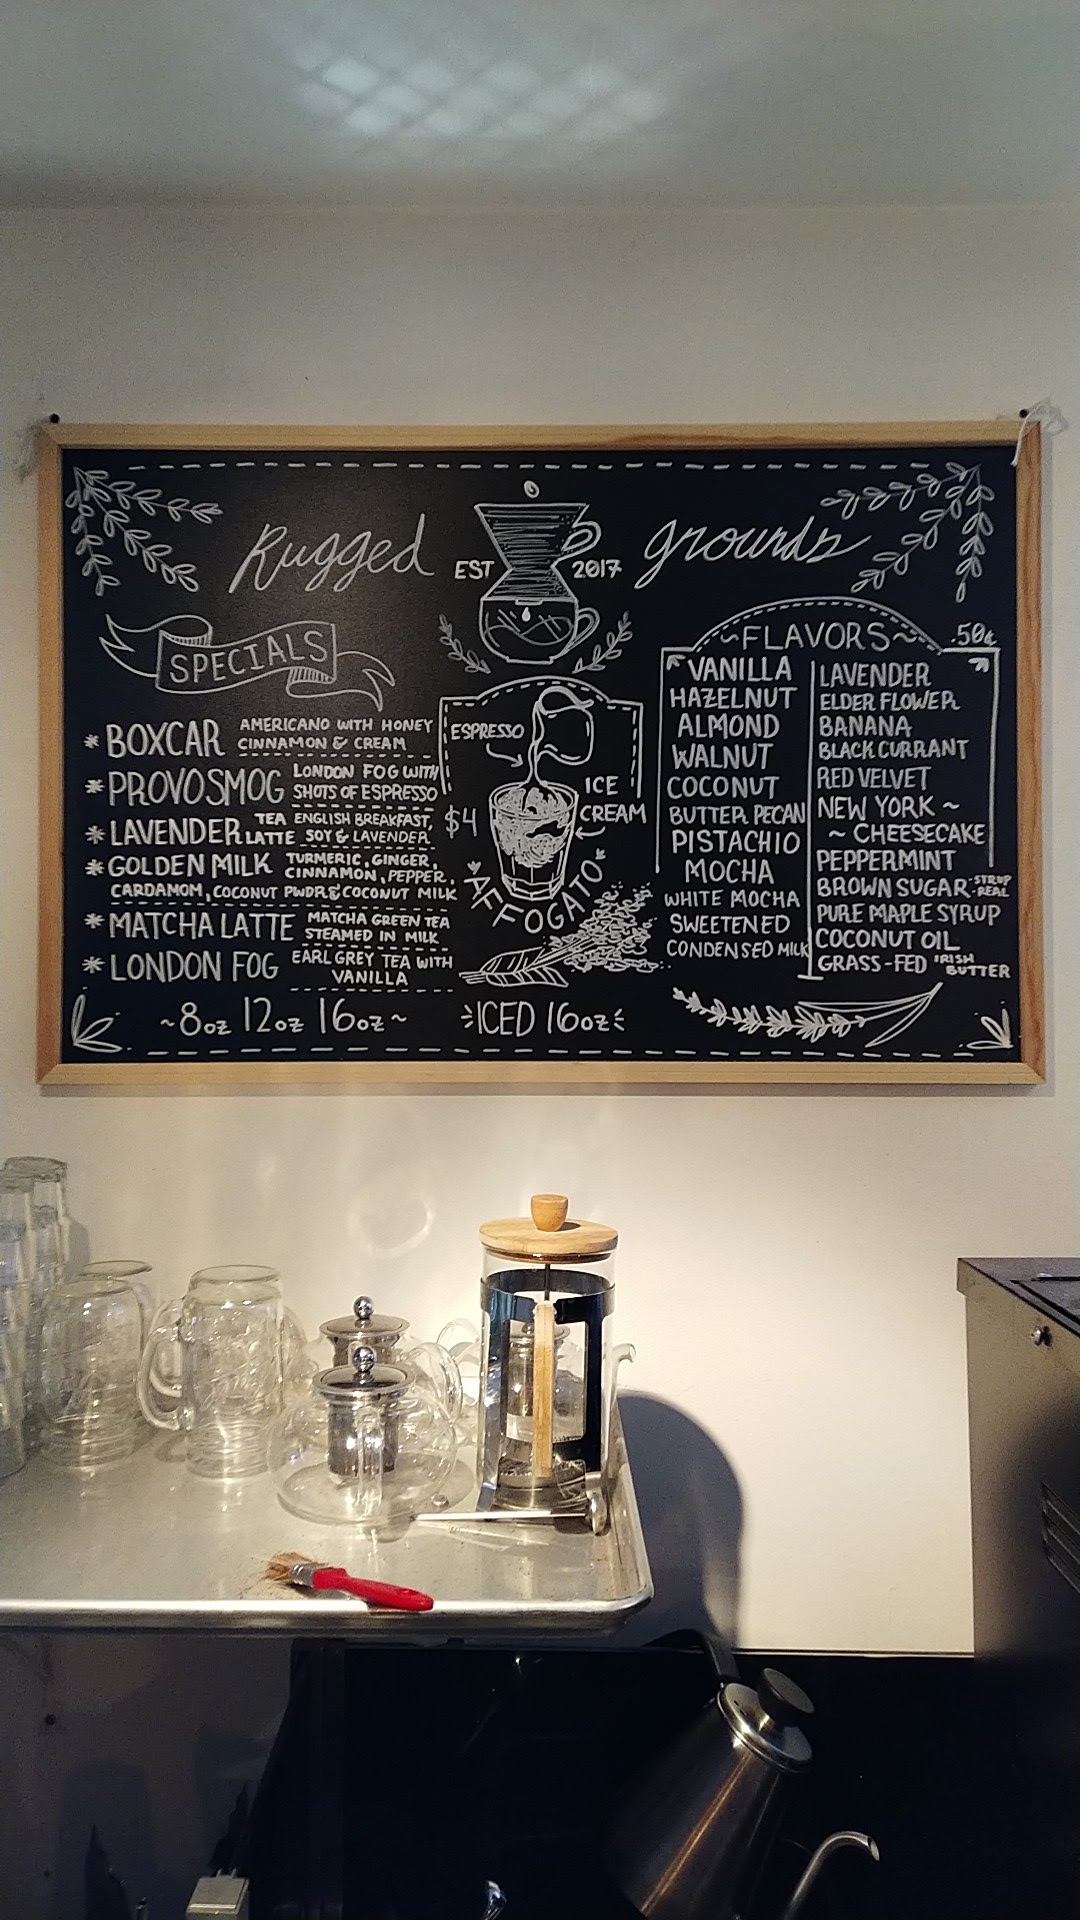 Rugged EST 2017 grounds
SPECIALS
* BOXCAR AMERICANO WITH HONEY
CINNAMON & CREAM
* PROVOSMOG LONDON FOG WITH
SHOTS OF ESPRESSO
* LAVENDER TEA LATTE ENGLISH BREAKFAST,
SOY & LAVENDER
* GOLDEN MILK TURMERIC, GINGER,
CINNAMON, PEPPER,
CARDAMOM, COCONUT PWDR & COCONUT MILK
* MATCHA LATTE MATCHA GREEN TEA
STEAMED IN MILK
* LONDON FOG EARL GREY TEA WITH
VANILLA
~8oz 12oz 16oz~
ESPRESSO
ICE
CREAM
$4
AFFOGATO
ICED 16oz
~FLAVORS~ .50¢
VANILLA
HAZELNUT
ALMOND
WALNUT
COCONUT
BUTTER PECAN
PISTACHIO
MOCHA
WHITE MOCHA
SWEETENED
CONDENSED MILK
LAVENDER
ELDER FLOWER
BANANA
BLACK CURRANT
RED VELVET
NEW YORK ~
~ CHEESECAKE
PEPPERMINT
BROWN SUGAR -SYRUP
-REAL
PURE MAPLE SYRUP
COCONUT OIL
GRASS-FED IRISH
BUTTER